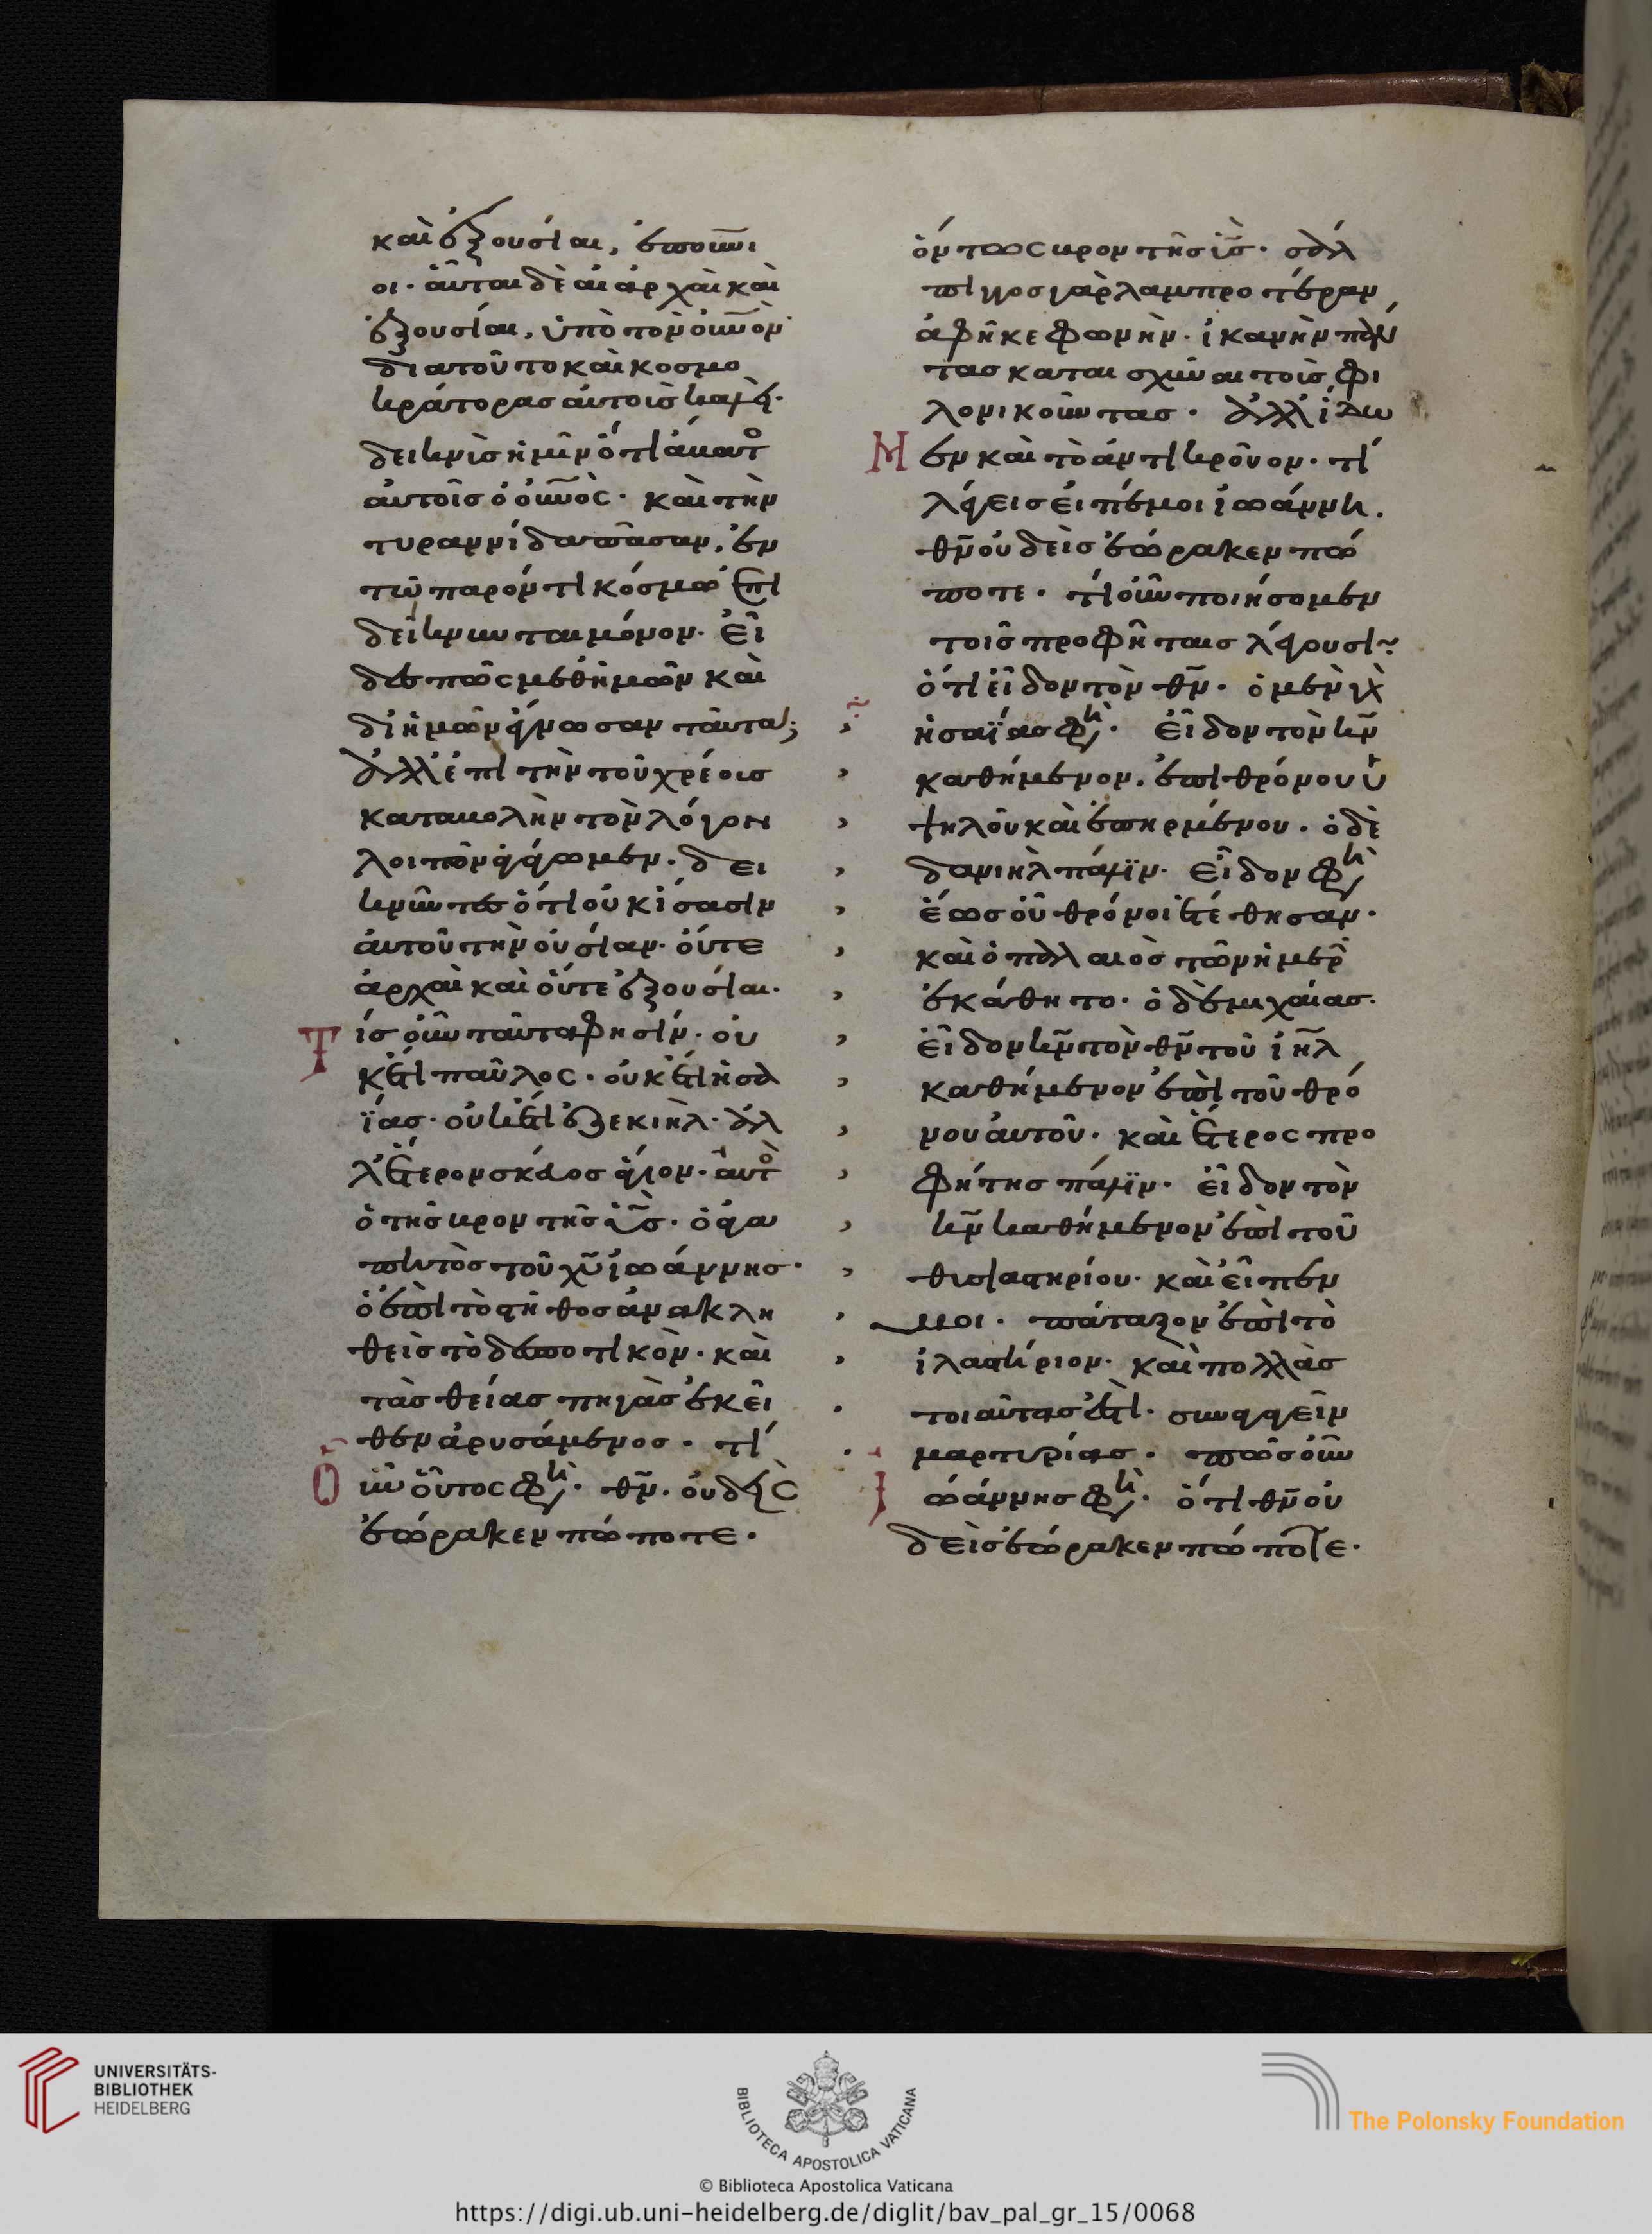 καὶ ἐξουσίαι, ἐπουνι
οι· αὗται δὲ αἱ ἀρχαὶ καὶ
ἐξουσίαι, ὑπὸ τὸν οὐνον
διατοῦτο καὶ κοσμο
κράτορας αὐτοὺς καλεῖ·
δεικνὺς ἡμῖν ὅτι ἄβατο
αὐτοῖς ὁ οὐνὸς· καὶ τὴν
τυραννίδα πᾶσαν, ἐν
τῷ παρόντι κόσμω ἐπι
δείκνυνται μόνον. Εἶ
δες πῶς μεθ ἡμῶν καὶ
δι ἡμῶν ἔγνωσαν ταῦτα;
ἀλλ ἐπὶ τὴν τοῦ χρέους
καταβολὴν τὸν λόγον
λοιπὸν ἄγωμεν. δει
κνῦντες ὅτι οὐκ ἴσασιν
αὐτοῦ τὴν οὐσίαν· οὔτε
ἀρχαὶ καὶ οὔτε ἐξουσίαι.
Τίς οὖν ταῦτα φησίν· οὐ
κέτι παῦλος· οὐκέτι ἡσα
ΐας· οὐκέτι ἐζεκιὴλ· ἀλ
λ ἕτερον σκεῦος ἅγιον· αὐτὸς
ὁ τῆς βροντῆς υἱς· ὁ ἀγα
πητὸς τοῦ χυ ἰωάννης·
ὁ ἐπὶ τὸ στῆθος ἀνακλη
θεὶς τὸ δεσποτικὸν· καὶ
τὰς θείας πηγὰς ἐκεῖ
θεν ἀρυσάμενος· τί
Οὖν οὗτος φησὶ· θν. οὐδεὶς
ἑώρακεν πώποτε.
ὄντως βροντῆς υἱς· σάλ
πιγγος γὰρ λαμπροτέραν
ἀφῆκε φωνὴν· ἱκανὴν πάν
τας καταισχύναι τοὺς φι
λονικοῦντας· ἀλλ ἴδω
Μεν καὶ τὸ ἀντικροῦον· τί
λέγεις εἰπέ μοι ἰωάννη.
θν οὐδεὶς ἑώρακεν πώ
ποτε· τί οὖν ποιήσομεν
τοῖς προφήταις λέγουσι~
ὅτι εἶδον τὸν θν· ὁ μὲν γὰρ
ἡσαΐας φησὶ· εἶδον τὸν κν
καθήμενον, ἐπὶ θρόνου ὑ
ψηλοῦ καὶ ἐπηρμένου· ὁ δὲ
δανιὴλ πάλϊν· εἶδον φησὶ
ἕως οὗ θρόνοι ἐτέθησαν·
καὶ ὁ παλαιὸς τῶν ἡμερῶν
ἐκάθητο· ὁ δὲ μιχαίας.
εἶδον κν τὸν θν τοῦ ιηλ
καθήμενον ἐπὶ τοῦ θρό
νου αὐτοῦ· καὶ ἕτερος προ
φήτης πάλϊν· εἶδον τὸν
κν καθήμενον ἐπὶ τοῦ
θυσιαστηρίου· καὶ εἶπέν
μοι· πάταξον ἐπὶ τὸ
ἱλαστήριον· καὶ πολλὰς
τοιαῦτας ἐστὶ· συναγαγεῖν
μαρτυρίας· πῶς οὖν
Ἰωάννης φησὶ· ὅτι θν οὐ
δεὶς ἑώρακεν πώποτε.
UNIVERSITÄTS-
BIBLIOTHEK
HEIDELBERG
BIBLIOTECA APOSTOLICA VATICANA
The Polonsky Foundation
© Biblioteca Apostolica Vaticana
https://digi.ub.uni-heidelberg.de/diglit/bav_pal_gr_15/0068